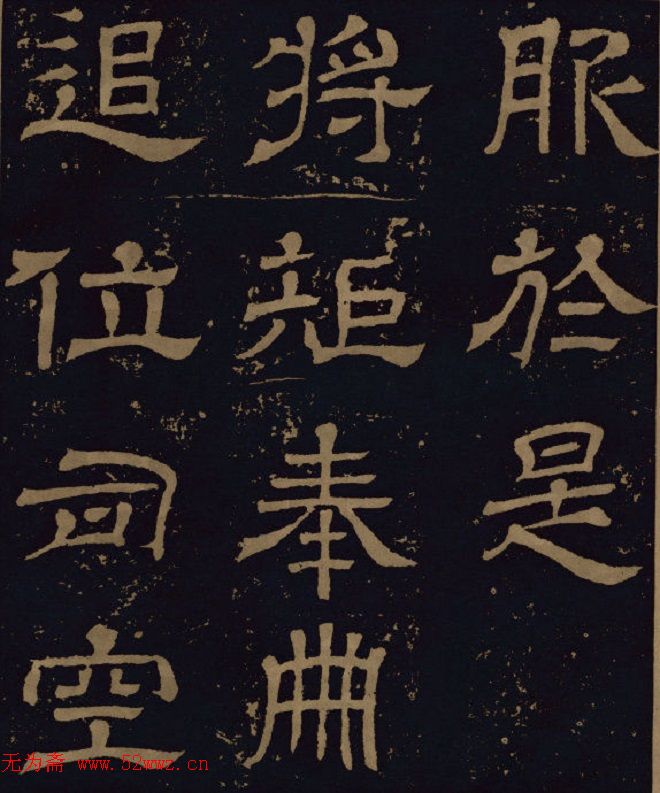 服於是
将奉冊
追位司空
无为斋 www.52wwz.cn